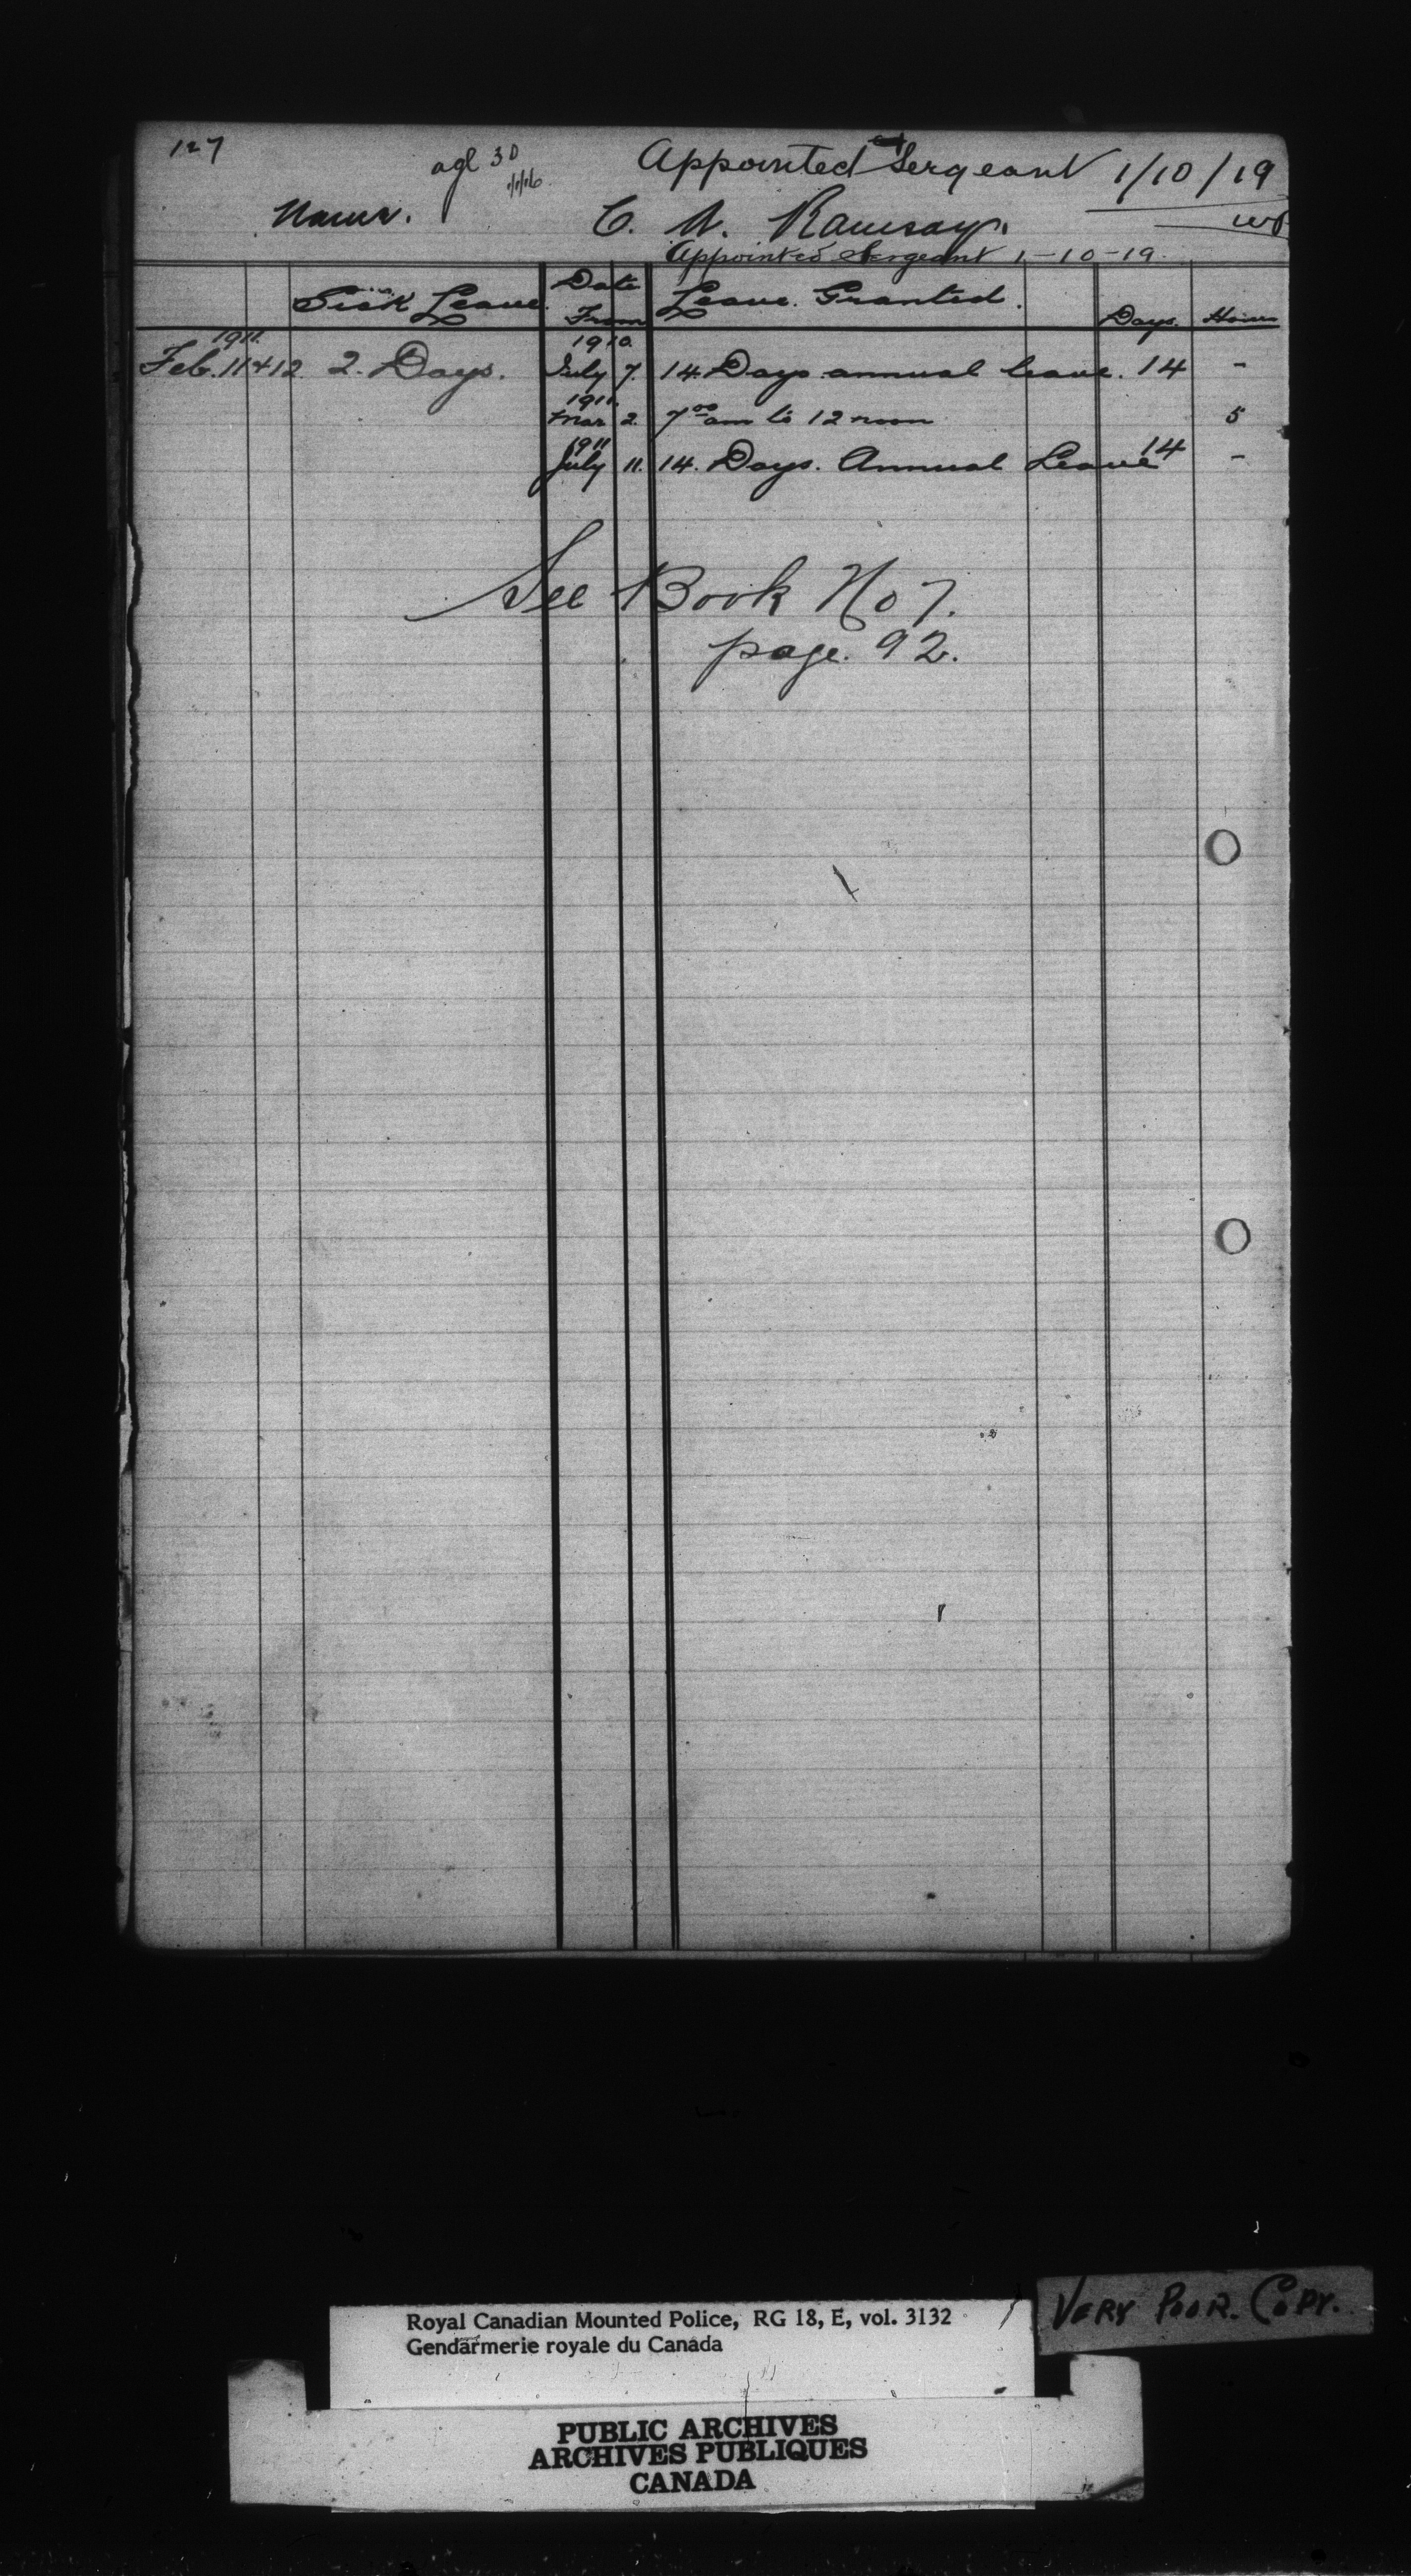 127
age 30
1/1/16
Appointed Sergeant 1/10/19
Name. C. N. Ramsay.
Appointed Sergeant 1-10-19.
Sick Leave Date From Leave Granted. Days. Hours
1911. 1910.
Feb. 11+12 2. Days. July 7. 14. Days annual leave. 14 -
1911.
Mar 2. 7 00 am to 12 noon 5
1911
July 11. 14. Days. Annual Leave 14 -
See Book No 7.
page. 92.
Royal Canadian Mounted Police, RG 18, E, vol. 3132
Gendarmerie royale du Canada
VERY POOR. COPY.
PUBLIC ARCHIVES
ARCHIVES PUBLIQUES
CANADA